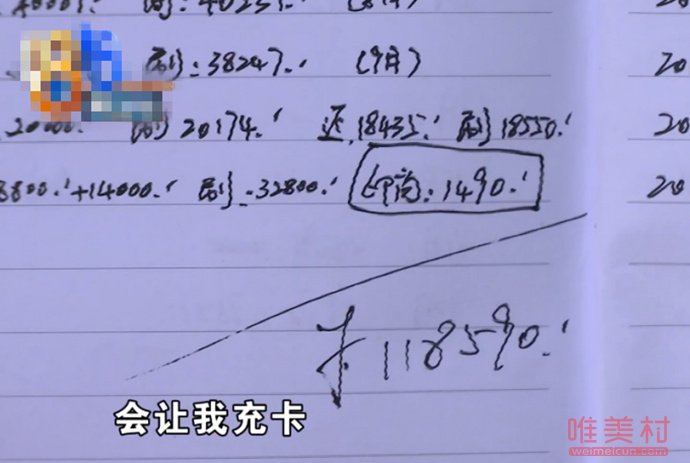 刷:40231.(8月) 20
刷:38247.(9月) 20
20000. 刷20174. 还.18435. 刷18550. 20
3800.+14000. 刷.32800. 1490. 20
118590.
会让我充卡
唯美村
weimeicun.com